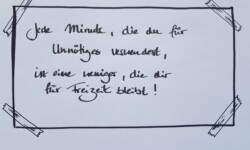 Jede Minute, die du für
Unnötiges verwendest,
ist eine weniger, die dir
für Freizeit bleibt!